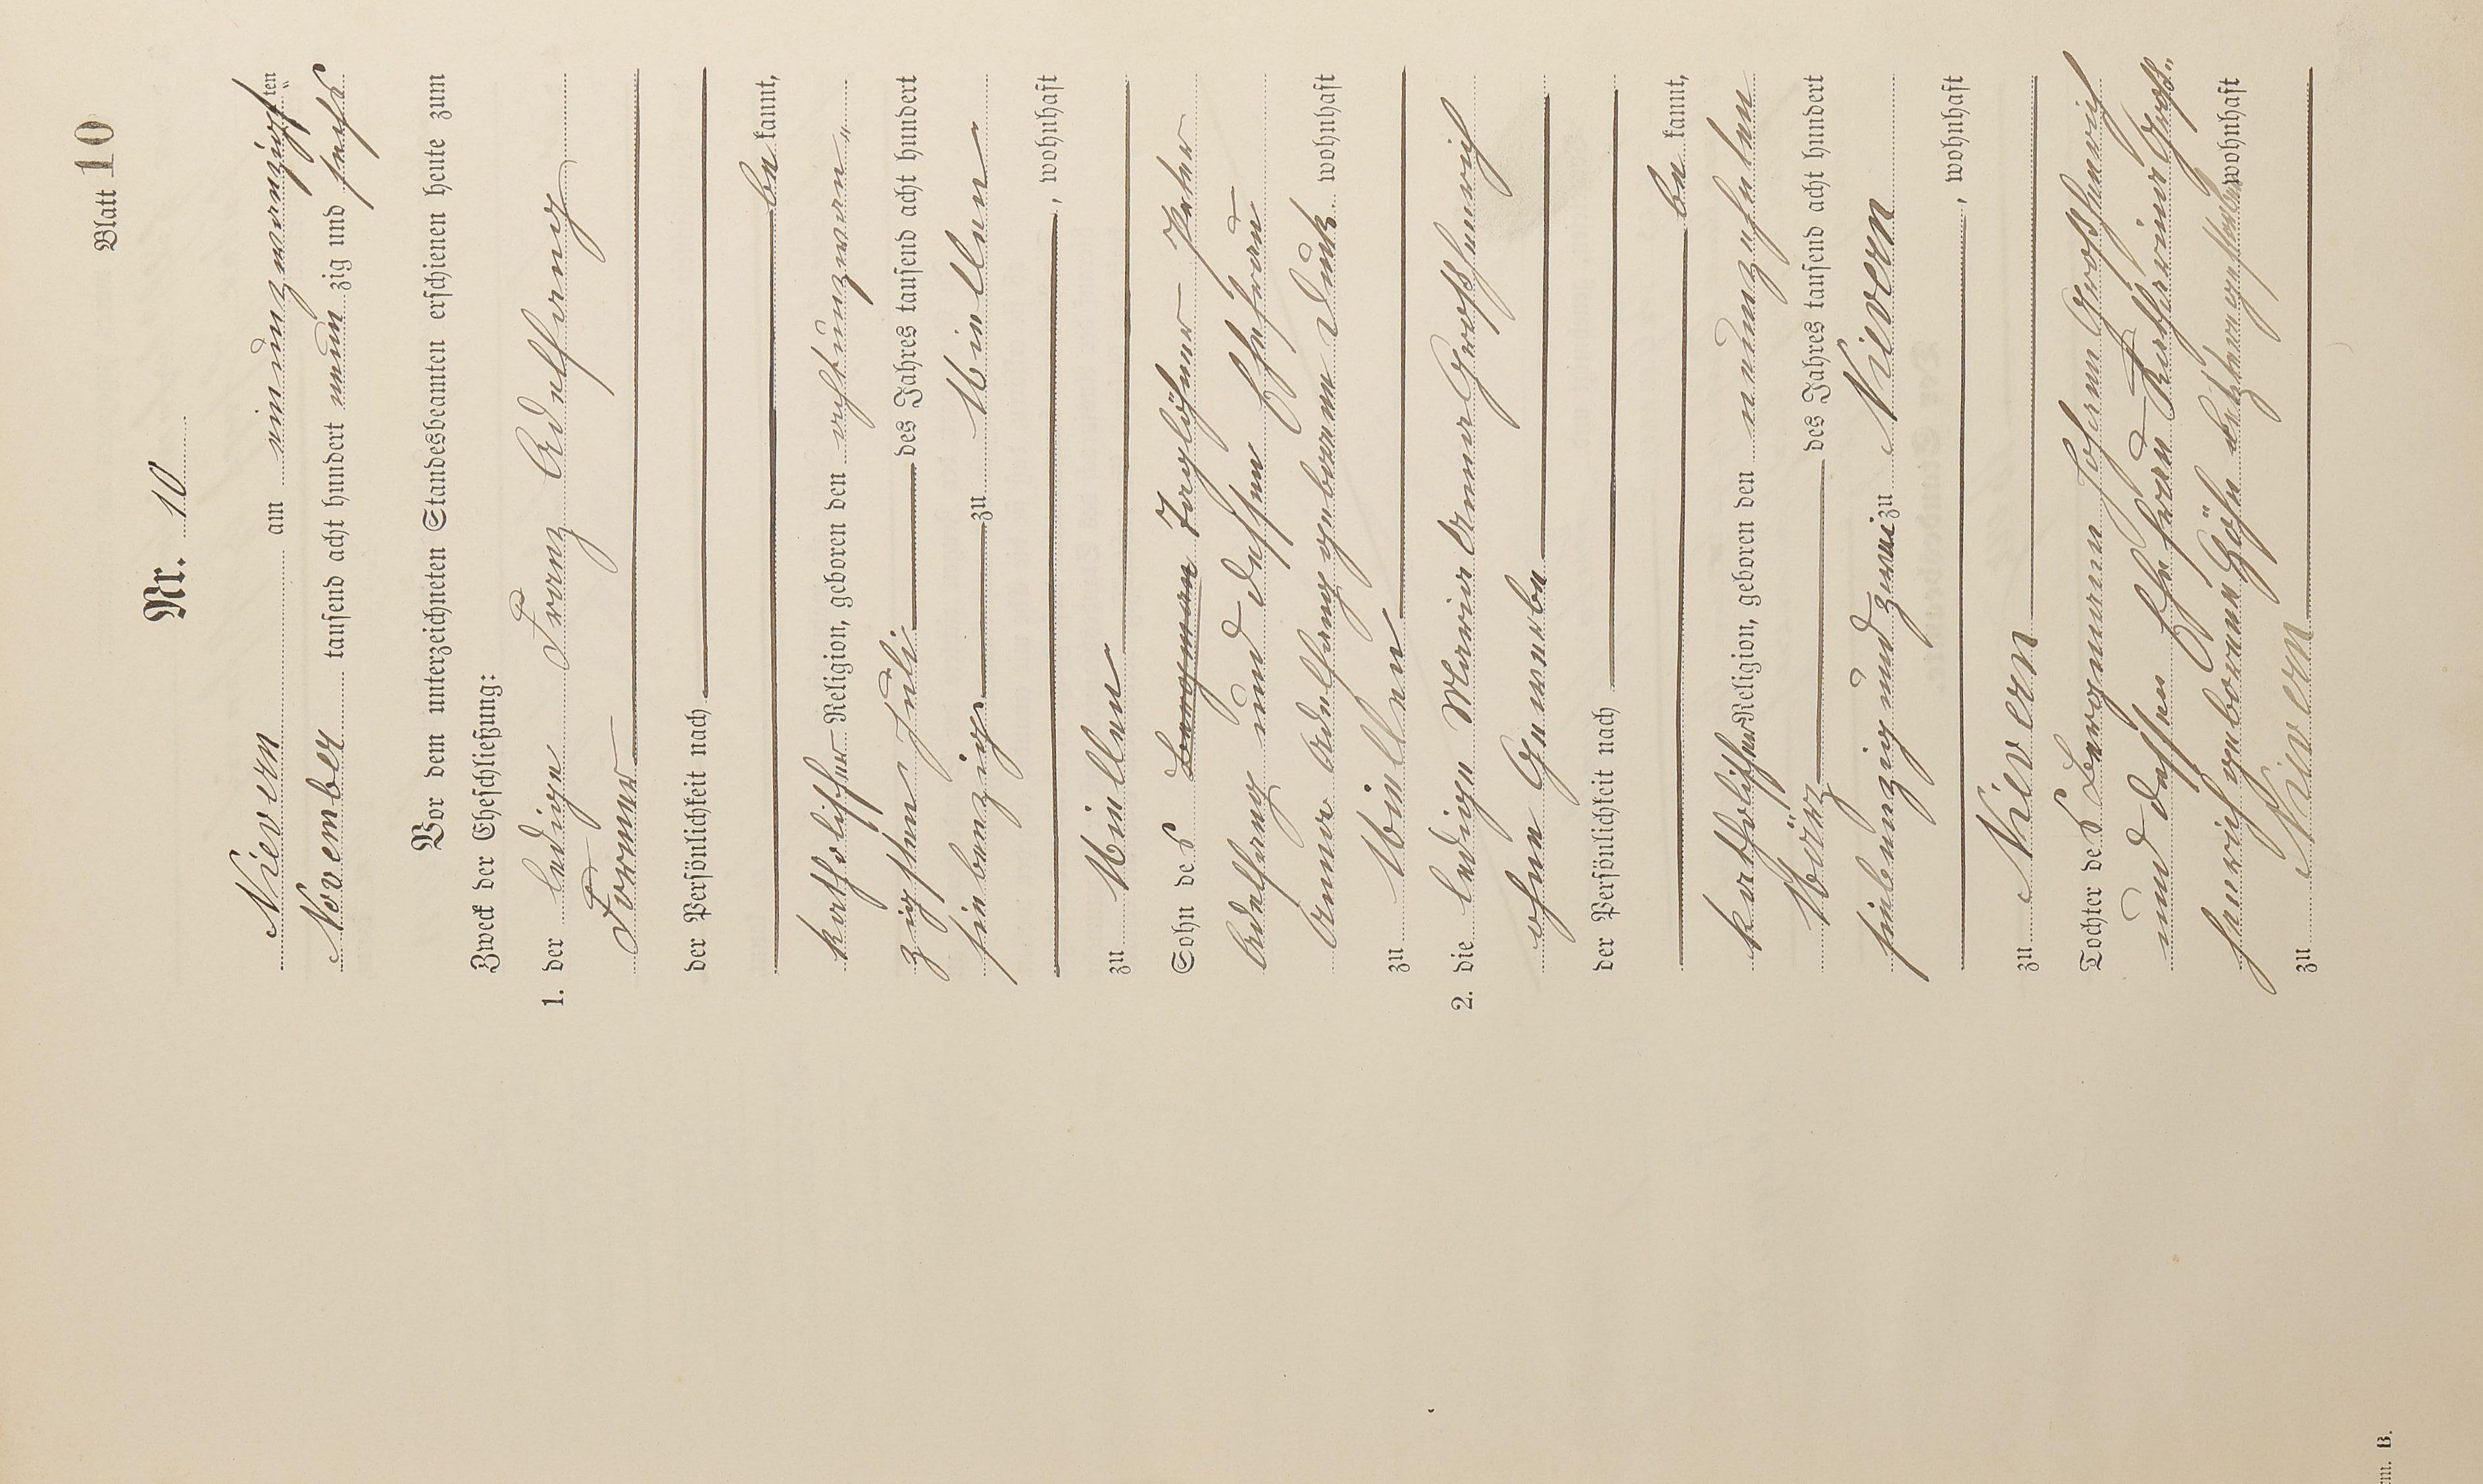 Blatt 10
Nr. 10
Nievern am einundzwanzigsten
November tausend acht hundert neunzig und sechs
Vor dem unterzeichneten Standesbeamten erschienen heute zum
Zweck der Eheschließung:
1. der ledige Franz Adelfang
Former
der Persönlichkeit nach
be kannt,
katholischer Religion, geboren den achtundzwan„
zigsten Juli des Jahres tausend acht hundert
siebenzig zu Miellen
, wohnhaft
zu Miellen
Sohn des Bergmann Taglöhner Peter
Adelfang und dessen Ehefrau
Anna Adelfang geborenen wohnhaft
zu Miellen
2. die ledige Maria Anna Großhenrich
ohne Gewerbe
der Persönlichkeit nach
be kannt,
katholischer Religion, geboren den neunzehnten
März des Jahres tausend acht hundert
siebenzig und zwei zu Nievern
, wohnhaft
zu Nievern
Tochter des Bergmann Johann Großhenrich
und dessen Ehefrau Katharina Groß„
henrich geborenen wohnhaft
zu Nievern
B.